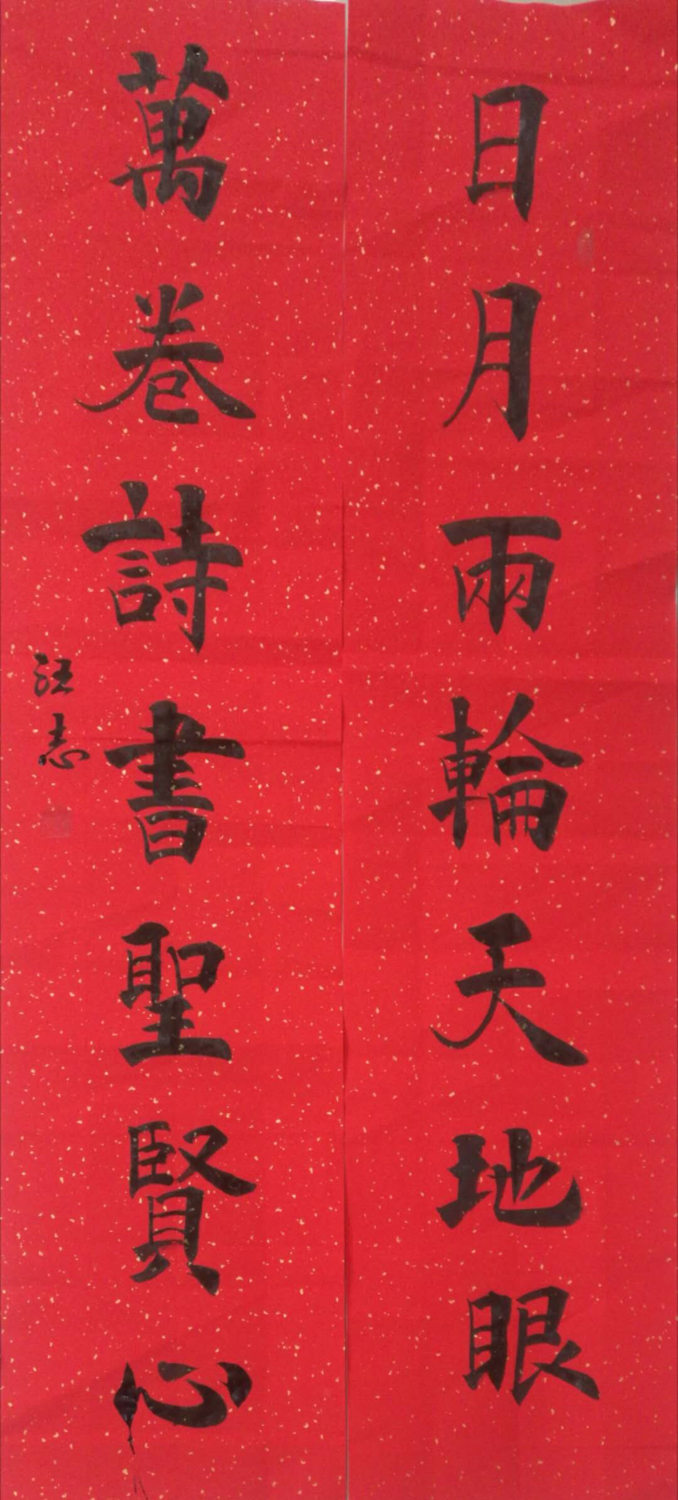 日月兩輪天地眼
萬卷詩書聖賢心
汪志